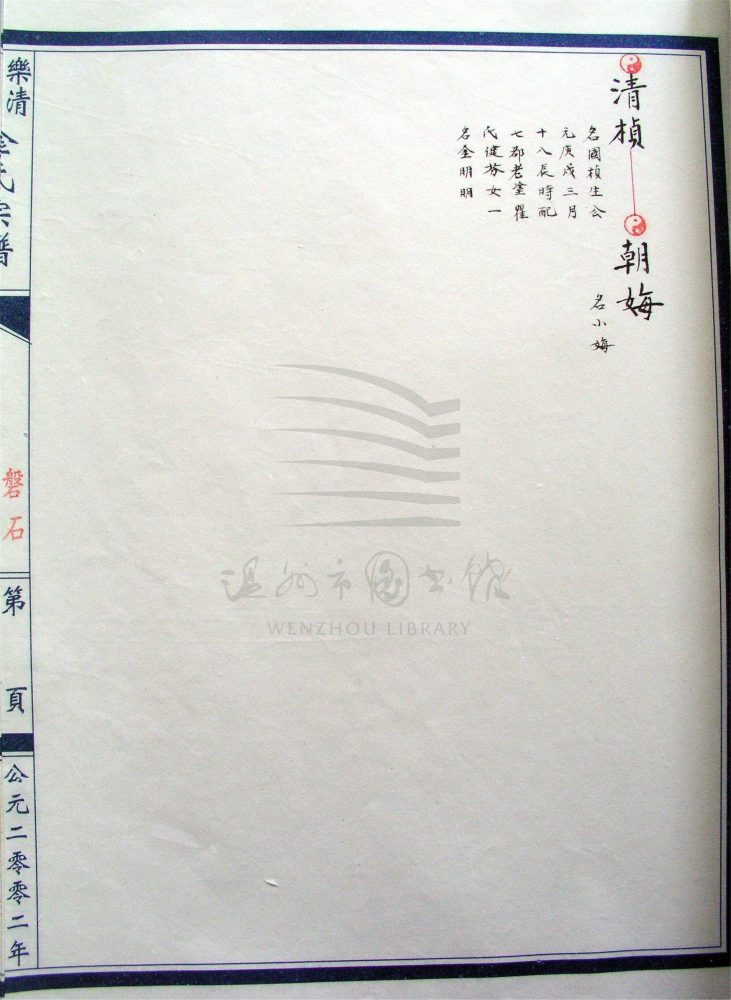 清楨
名國楨生公
元庚戌三月
十八辰時配
七都老塗瞿
氏健芬女一
名金明明
朝娒
名小娒
樂清金氏宗譜
磐石
第 頁
公元二零零二年
温州市图书馆
WENZHOU LIBRARY